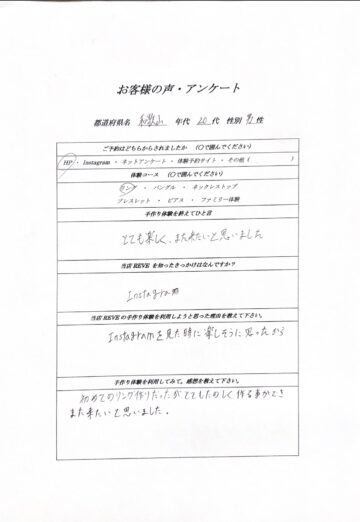 お客様の声・アンケート
都道府県名 和歌山 年代 20 代 性別 男 性
ご予約はどちらからされましたか (〇で囲んでください)
HP ・ Instagram ・ ネットアンケート ・ 体験予約サイト ・ その他 ( )
体験コース (〇で囲んでください)
リング ・ バングル ・ ネックレストップ
ブレスレット ・ ピアス ・ ファミリー体験
手作り体験を終えてひと言
とても楽しく、また来たいと思いました
当店 REVE を知ったきっかけはなんですか?
Instagram
当店 REVE の手作り体験を利用しようと思った理由を教えて下さい。
Instagramを見た時に楽しそうに思ったから
手作り体験を利用してみて。感想を教えて下さい。
初めてのリング作りだったがとてもたのしく作る事ができ
また来たいと思いました。